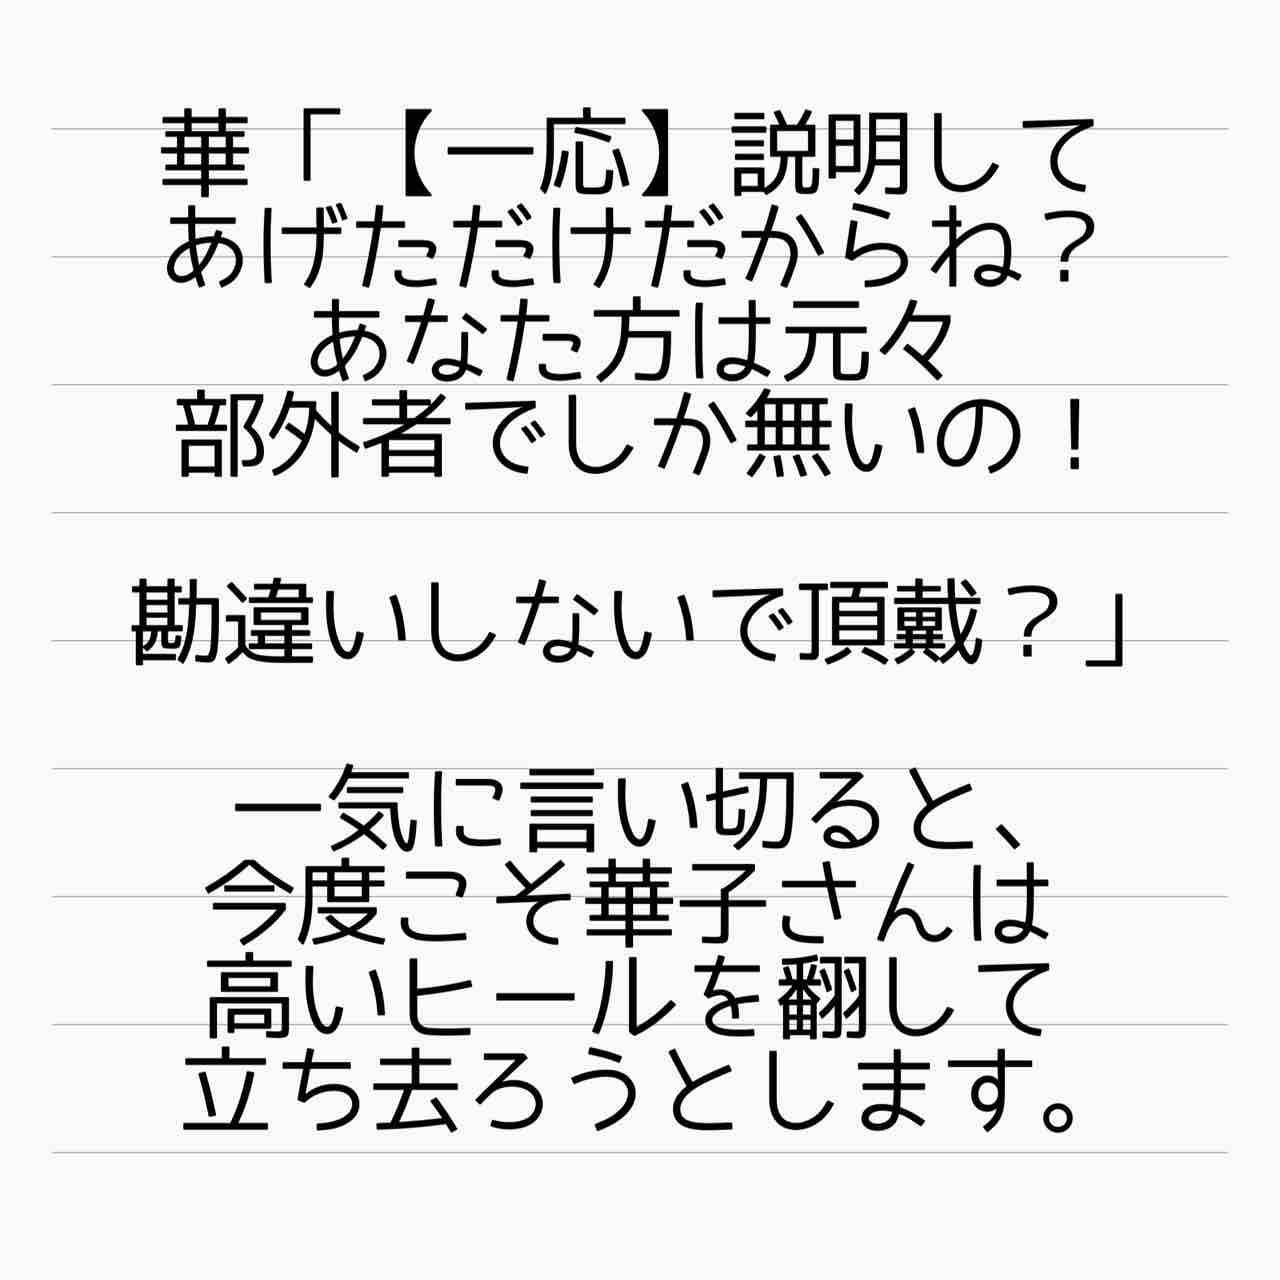 華「【一応】説明して
あげただけだからね？
あなた方は元々
部外者でしか無いの！
勘違いしないで頂戴？」
一気に言い切ると、
今度こそ華子さんは
高いヒールを翻して
立ち去ろうとします。